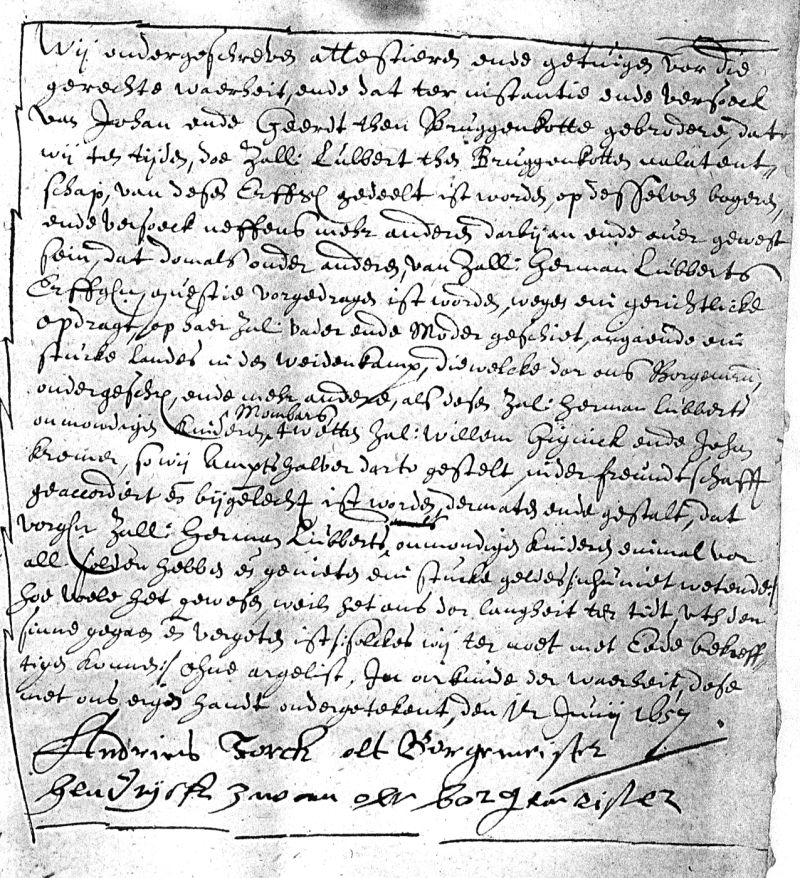 Wij ondergeschreven attestieren ende getuigen vor die
gerechte waerheit, ende dat ter instantie ende versoeck
van Johan ende Geerdt then Bruggenkotte gebrodere, dat
wij ten tijden, doe Zall: Lubbert then Bruggenkotten nalatent
schap, van desen Erffg. gedeelt ist worden, op desselven bogeren,
ende versoeck neffens mehr anderen darbij an ende over gewest
sein, dat domals onder anderen, van Zall: Herman Lubberts
Erffg. questie vorgedragen ist worden, wegen ein gerichtlicke
opdragt, op haer Zal: vader ende Moder geschiet, angaende ein
stucke landes in den weidenkamp, diewelcke dor ons Borgem.
ondergesch., ende mehr andere, als desen Zal: Herman Lubberts
onmondigen Kinderen Mombars twetten Zal: Willem Hijginck ende Johan
Kremer, so wij Ampts halver darto gestelt, in der freundtschafft
geaccordiert en bijgelecht ist worden, dermaten ende gestalt, dat
vorg. Zall: Herman Lubberts onmondigen Kinderen einmal vor
all solden hebben en genieten ein stucke geldes, niet wetende
hoe vele het gewesen, weil het ons dor langheit ter tidt, uth den
sinne gegaen en vergeten ist, solckes wij ter noet met Eede bekreff
tigen konnen, ohne argelist, In orkunde der waerheit, dese
met ons eigen handt ondergetekent, den Junij 1657
Andries Forck olt Borgemeister
Hendrijck Zwaen olt borgemeister